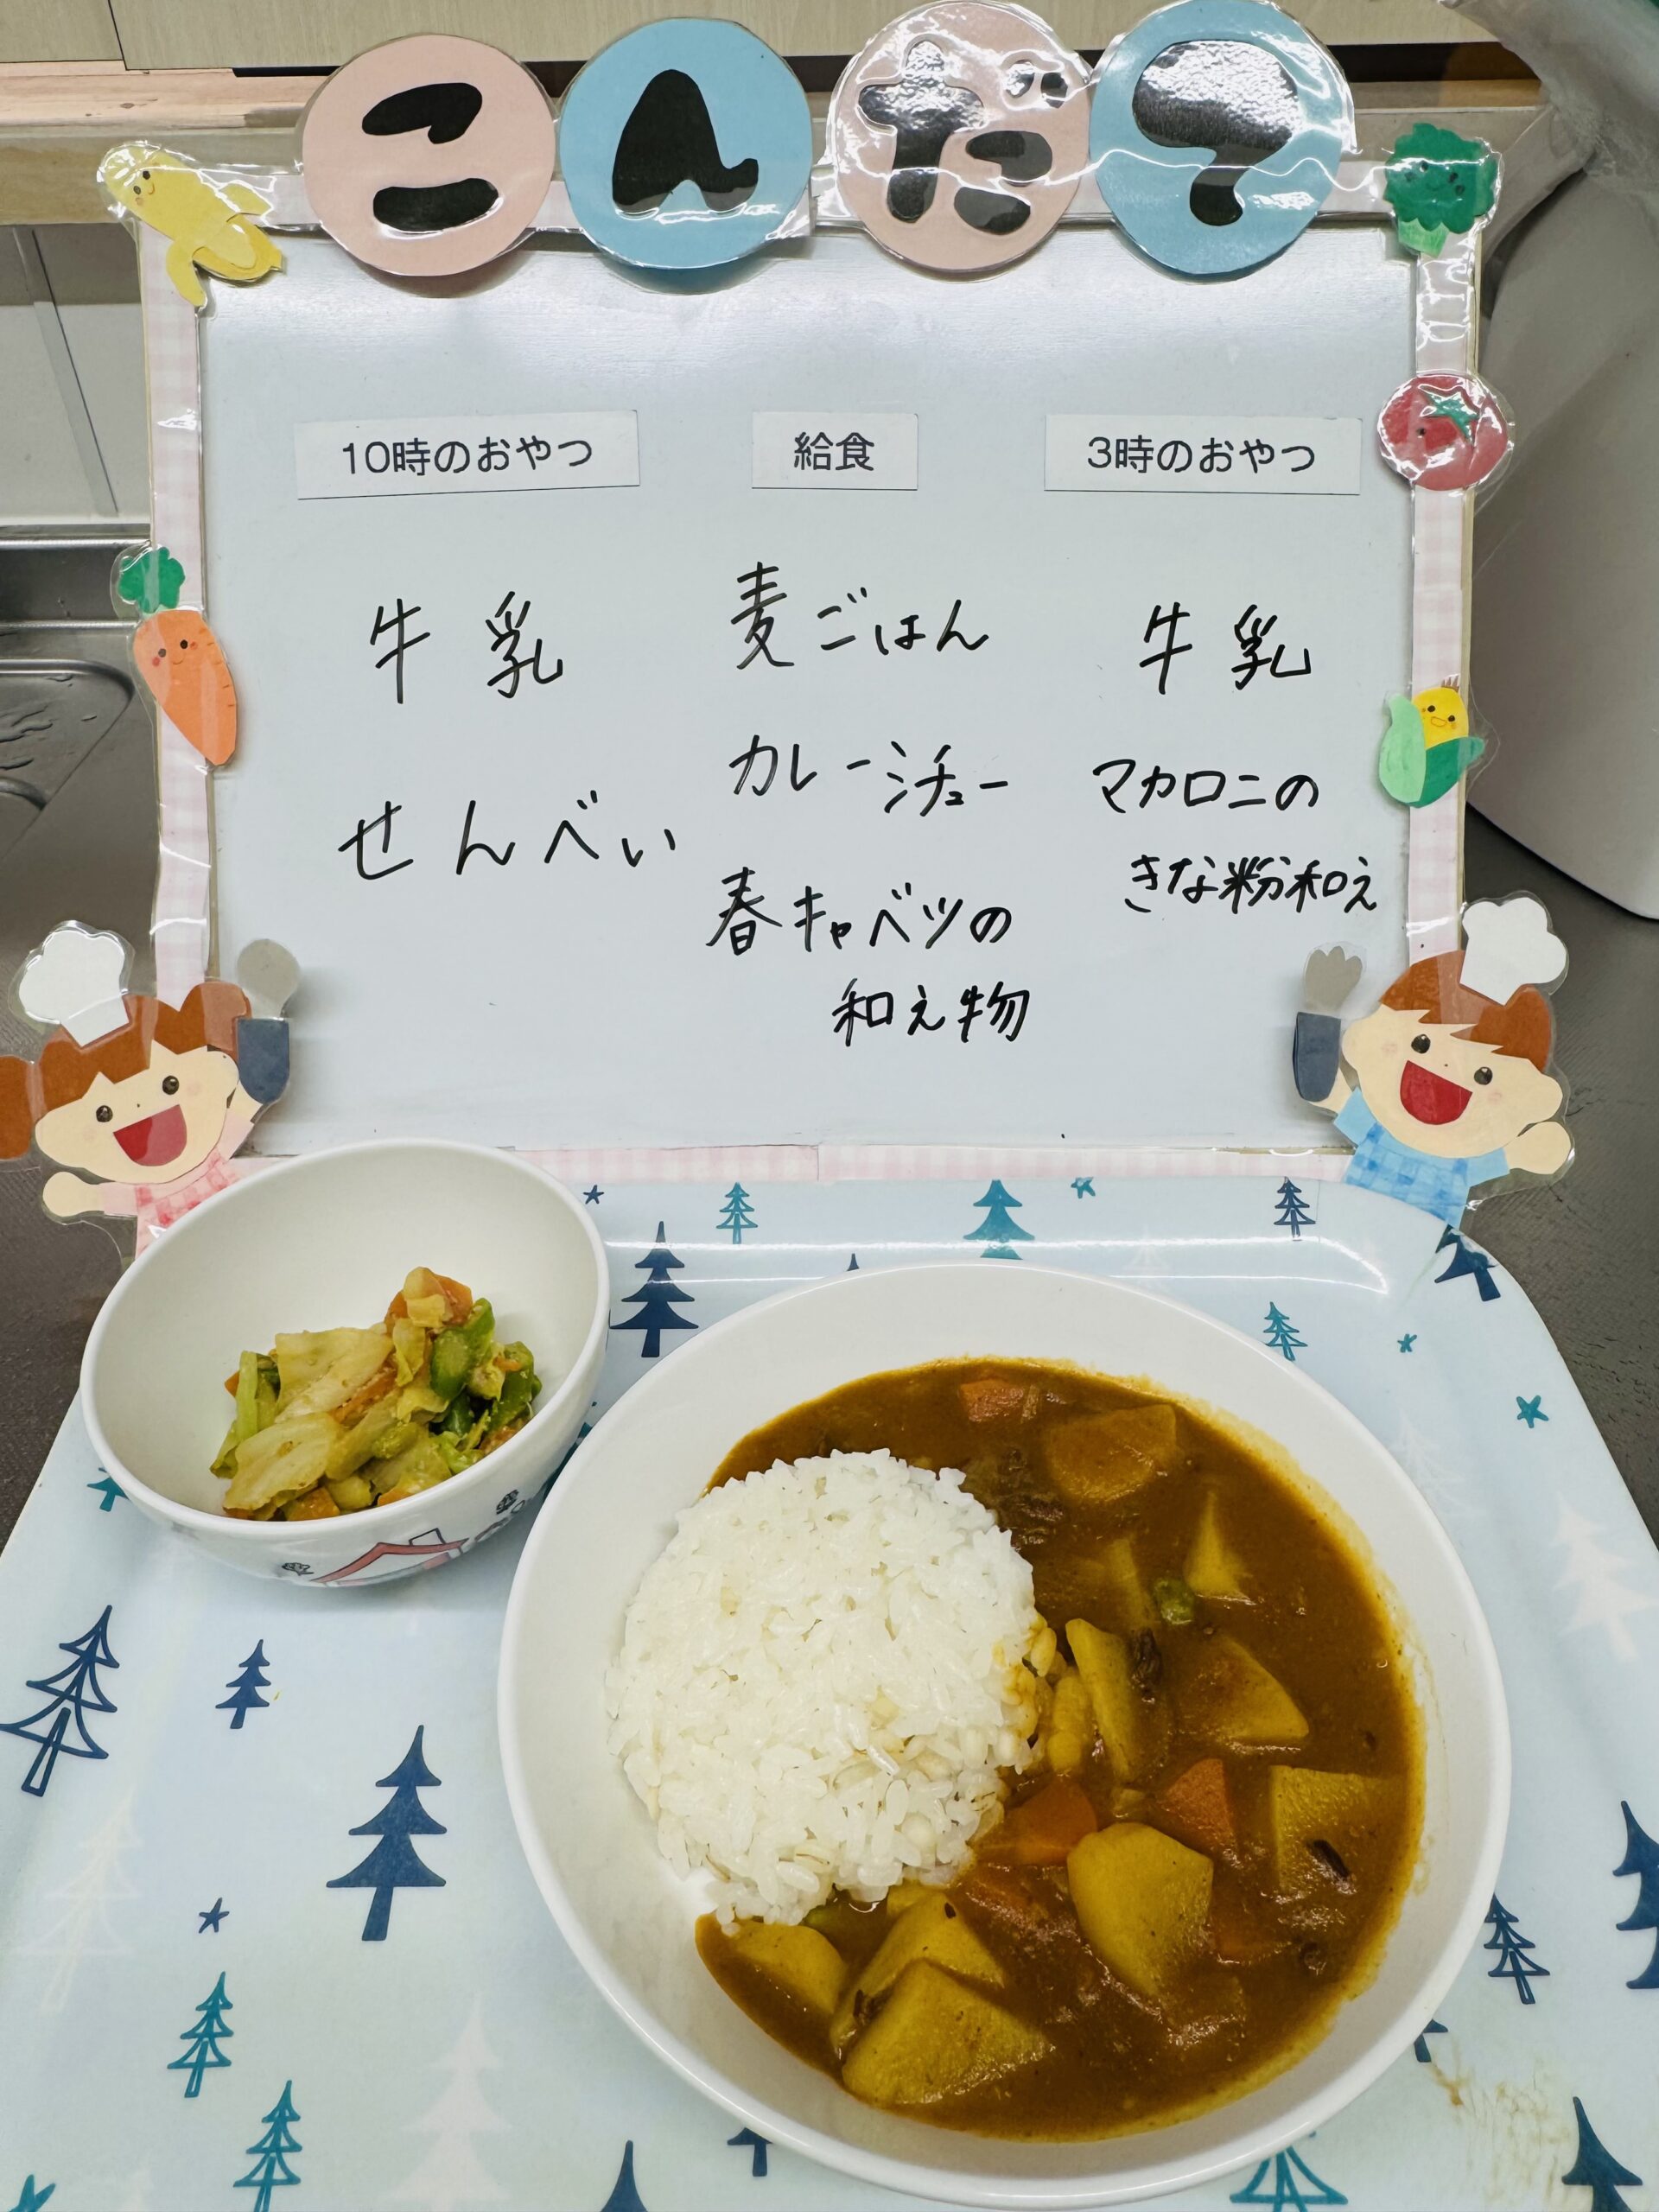 こんだて
10時のおやつ
牛乳
せんべい
給食
麦ごはん
カレーシチュー
春キャベツの
和え物
3時のおやつ
牛乳
マカロニの
きな粉和え